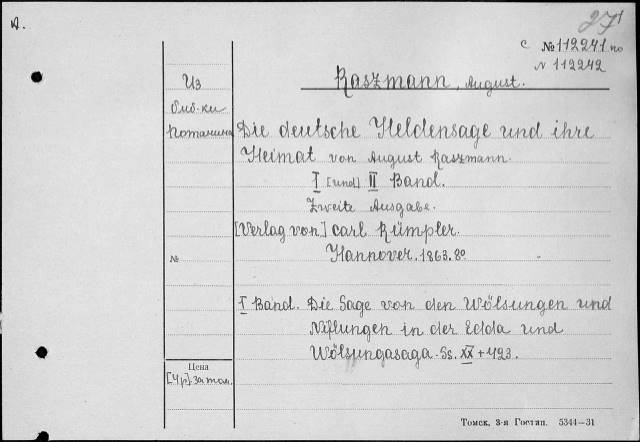 А.
271
с № 112241 по
N 112242
Из
биб-ки
Потанина
Raszmann, August.
Die deutsche Heldensage und ihre
Heimat von August Raszmann.
I [und] II Band.
Zweite Ausgabe.
[Verlag von] Carl Rümpler.
Hannover. 1863. 8º
№
I Band. Die Sage von den Wölsungen und
Niflungen in der Edda und
Wölsungasaga. Ss. XX + 423.
Цена
[4 р]. за том.
Томск, 3-я Гостип. 5344—31